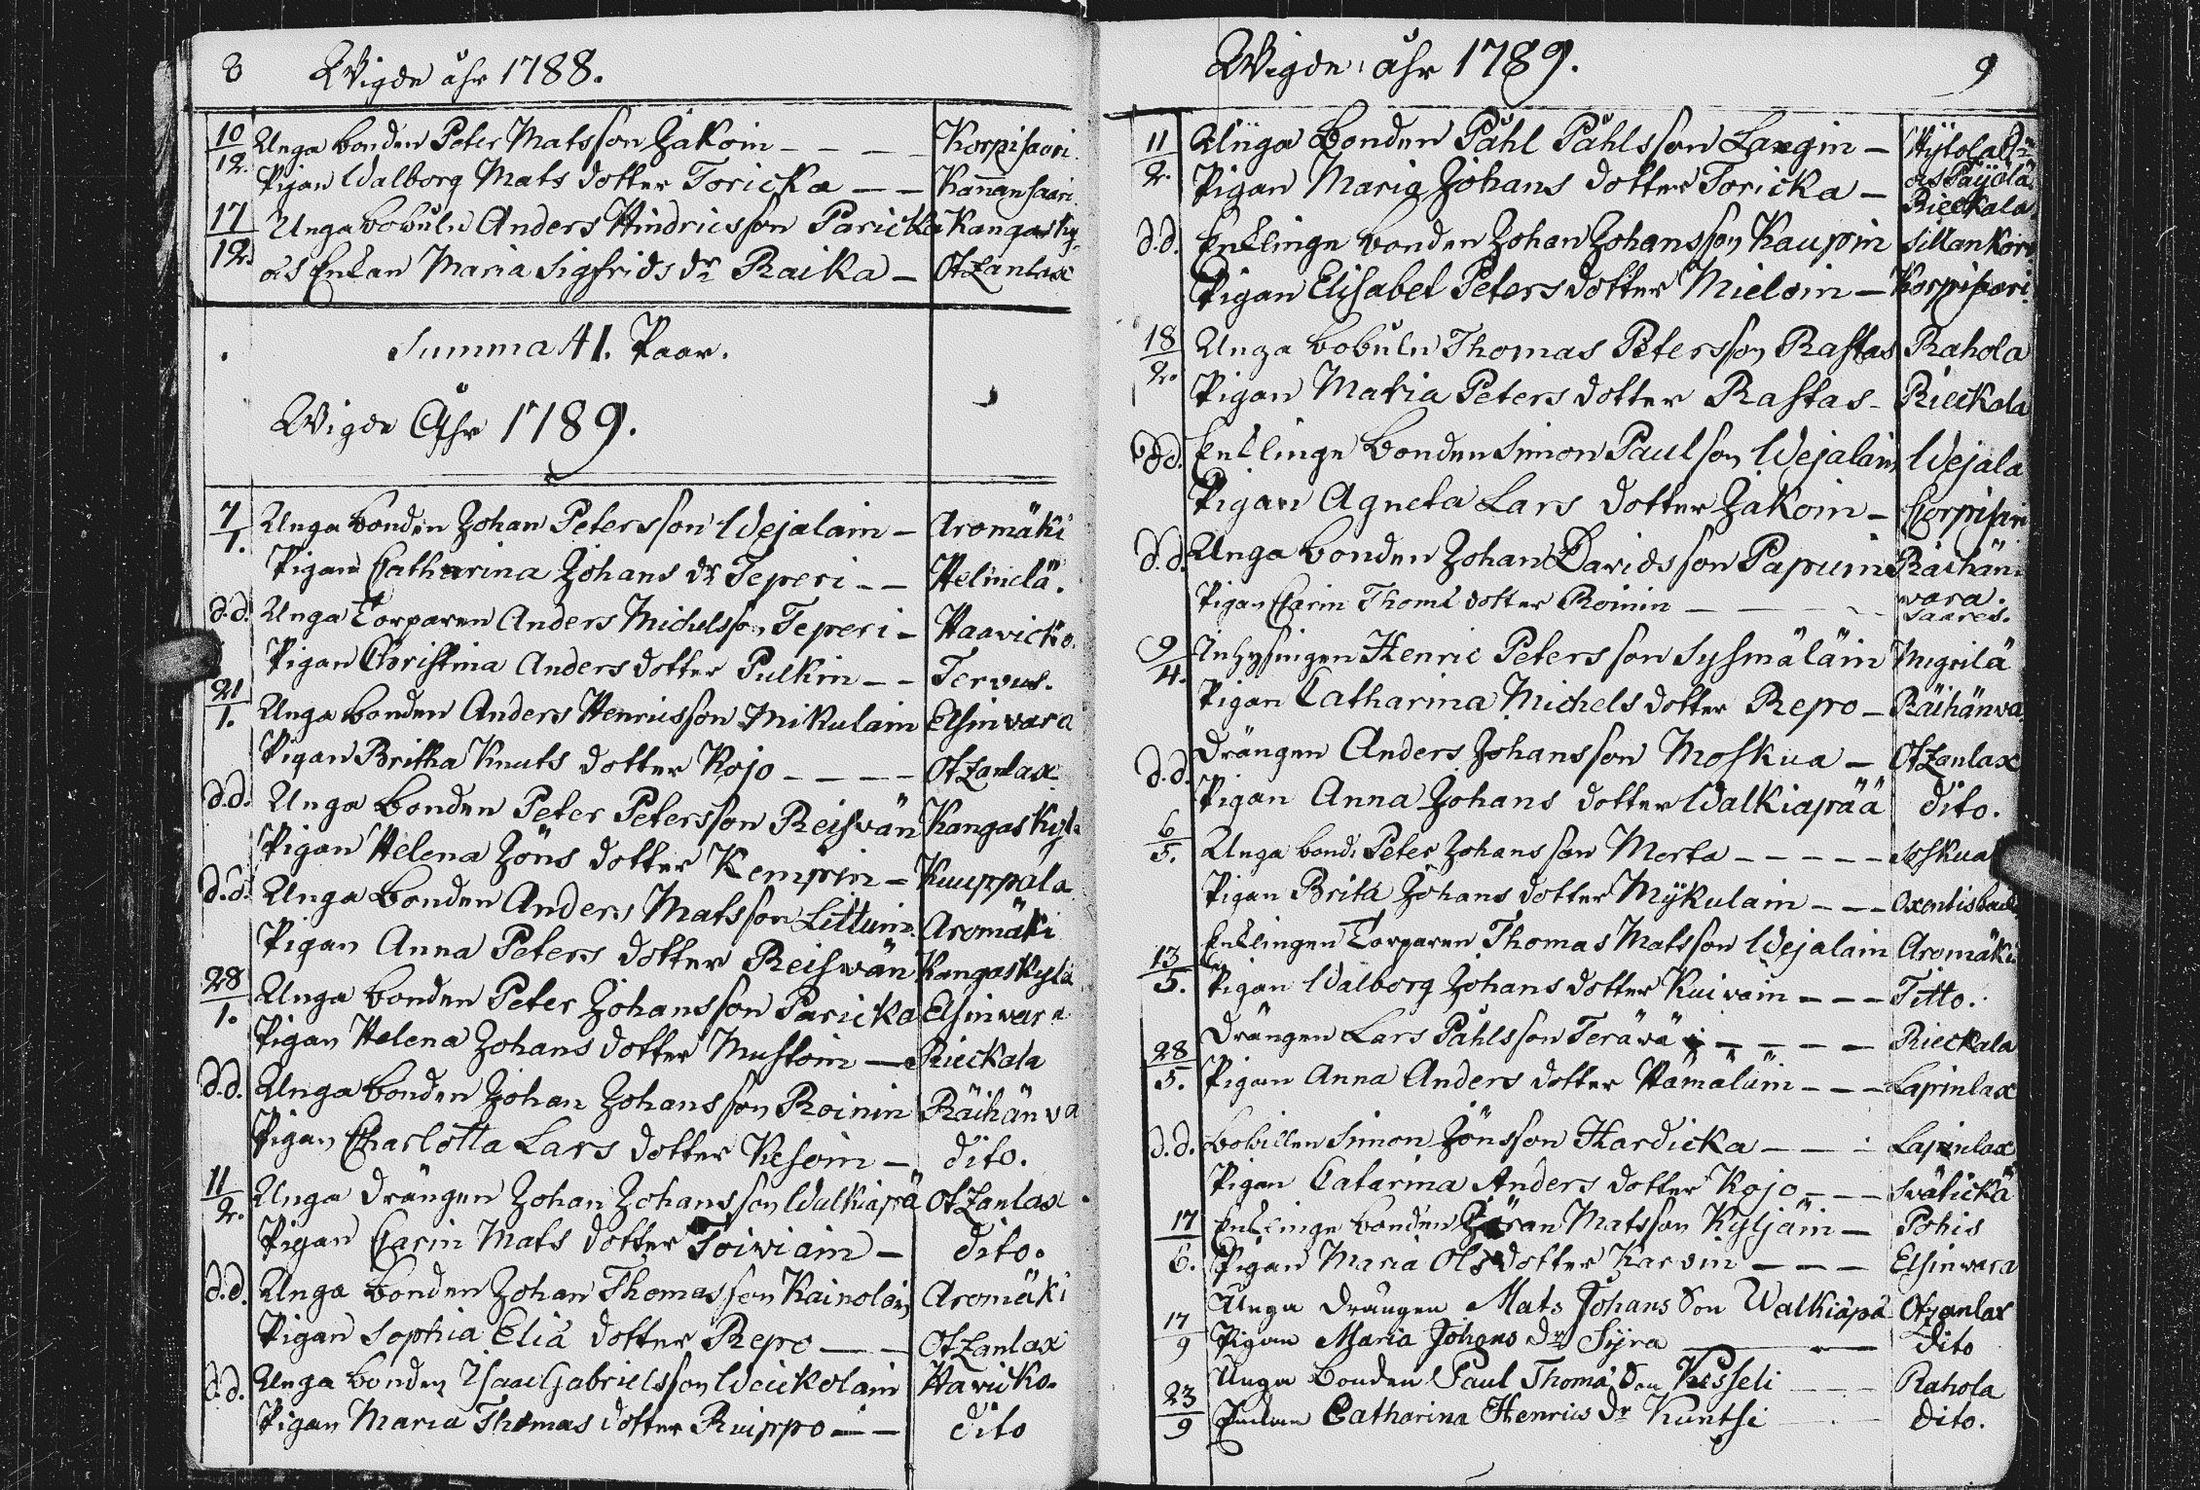 8 Wigde åhr 1788.
10/12. Unga bonden Peter Matsson Jakoin - - - - Korpisaari.
Pigan Walborg Mats dotter Toricka - - Kañansaari.
17/12. Unga bobuln Anders Hindricsson Paricka Kangasky.
ås Enkan Maria Sigfrids dr Raika - Otzanlax
Summa 41. Paar.
Wigde Åhr 1789.
7/1. Unga bonden Johan Petersson Wejalain - Aromäki
Pigan Catharina Johans dr Teperi - - Helmelä.
d.d. Unga Torparen Anders Michelsson Teperi - Haavicko.
Pigan Christina Anders dotter Pulkin - - Tervus.
21/1. Unga bonden Anders Henricsson Mikulain Elsinvara
Pigan Britha Knuts dotter Kojo - - - - Otzanlax
d.d. Unga bonden Peter Petersson Reiswän Kangaskylä
Pigan Helena Jöns dotter Kempin - Kuuppala
d.d. Unga bonden Anders Matsson Littuin. Aromäki
Pigan Anna Peters dotter Reiswän Kangaskylä
28/1. Unga bonden Peter Johansson Paricka Elsinvara
Pigan Helena Johans dotter Mustoin - Rieckala
d.d. Unga bonden Johan Johansson Roinin Räihänva
Pigan Charlotta Lars dotter Kesoin - dito.
11/2. Unga drängen Johan Johansson Walkiapä Otzanlax
Pigan Carin Mats dotter Toiviain - dito.
d.d. Unga bonden Johan Thomasson Kainolain Aromäki
Pigan Sophia Eliä dotter Repo - - Otzanlax
d.d. Unga bonden Isaac Gabrielsson Weickolain Havicko.
Pigan Maria Thomas dotter Ruippo - - dito
Wigde åhr 1789. 9
11/2. Unga Bonden Påhl Påhlsson Langin - Hÿtola
Pigan Maria Johans dotter Toricka - ås Päijölä Rieckala
d.d. Enklinge bonden Johan Johansson Kaupin Sillankorv
Pigan Elisabet Peters dotter Mieloin - Korpisaari.
18/2. Unga bobuln Thomas Petersson Rastas Rahola
Pigan Maria Peters dotter Rastas - Rieckala
d.d. Enklinge bonden Simon Paulson Wejalain Wejala
Pigan Agneta Lars dotter Jakoin - Corpisari
d.d. Unga bonden Johan Davidsson Papuin Räihän
vara.
Pigan Carin Thome dotter Roinin - - - - Saares.
9/4. Inhysingen Henric Petersson Sysmäläin Migrilä
Pigan Catharina Michels dotter Repo - Räihänva
d.d. Drängen Anders Johansson Moskua - Otzanlax
Pigan Anna Johans dotter Walkiapää dito.
6/5. Unga bond: Peter Johansson Morta - - - - - Soskua
Pigan Brita Johans dotter Mÿkulain - - -
13/5. Enklingen Torparen Thomas Matsson Wejalain Aromäki
Pigan Walborg Johans dotter Kuivain - - - Titto.
28/5. Drängen Lars Påhlsson Terävä - - - - Rieckala
Pigan Anna Anders dotter Hämäläin - - - Lapinlax
d.d. Bobillen Simon Jönsson Hardicka - - - Lapinlax
Pigan Catarina Anders dotter Kojo - - - Svätickä
17/6. Enklinge bonden Jöran Matsson Kyljäin - Pohis
Pigan Maria Ols dotter Karvin - - - Elsinvara
17/9 Unga Drängen Mats Johans Son Walkiapä Otzanlax
Pigan Maria Johans dr Sÿra dito
23/9 Unga Bonden Paul Thoma Son Kesseli - - Rahola
Catharina Henrics dr Kuntsi - - dito.